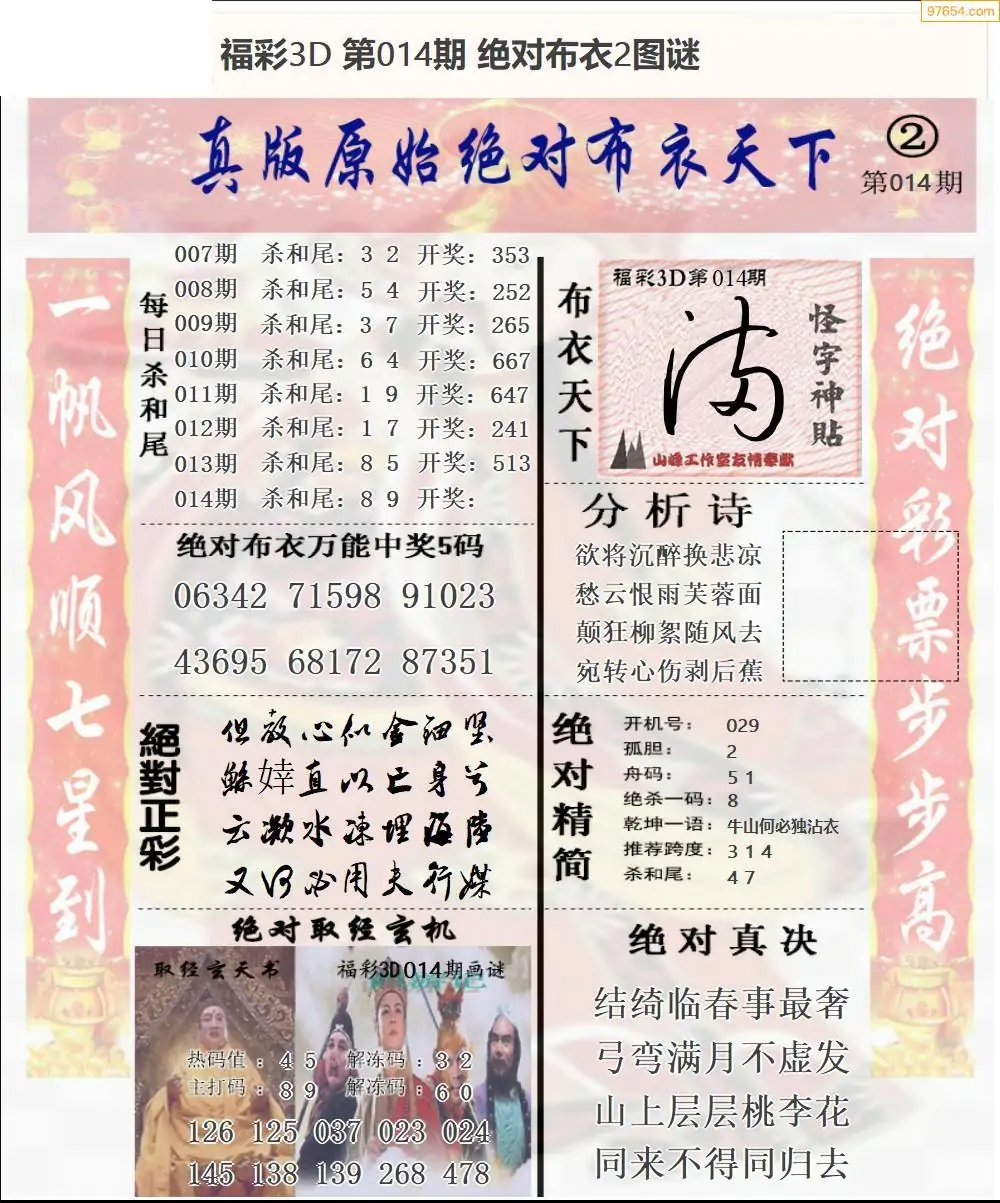 97654.com
福彩3D 第014期 绝对布衣2图谜
真版原始绝对布衣天下
②
第014期
一帆风顺七星到
每日杀和尾
007期 杀和尾：3 2 开奖：353
008期 杀和尾：5 4 开奖：252
009期 杀和尾：3 7 开奖：265
010期 杀和尾：6 4 开奖：667
011期 杀和尾：1 9 开奖：647
012期 杀和尾：1 7 开奖：241
013期 杀和尾：8 5 开奖：513
014期 杀和尾：8 9 开奖：
绝对布衣万能中奖5码
06342 71598 91023
43695 68172 87351
絕對正彩
但教心似金钿坚
鲧婞直以亡身兮
云濒水凍埋海陸
又何必用夫行媒
绝对取经玄机
取经玄天书
福彩3D014期画谜
热码值：4 5 解冻码：3 2
主打码：8 9 解冻码：6 0
126 125 037 023 024
145 138 139 268 478
布衣天下
福彩3D第014期
怪字神贴
山峰工作室友情奉献
分析诗
欲将沉醉换悲凉
愁云恨雨芙蓉面
颠狂柳絮随风去
宛转心伤剥后蕉
绝对精简
开机号：029
孤胆：2
舟码：5 1
绝杀一码：8
乾坤一语：牛山何必独沾衣
推荐跨度：3 1 4
杀和尾：4 7
绝对真决
结绮临春事最奢
弓弯满月不虚发
山上层层桃李花
同来不得同归去
绝对彩票步步高